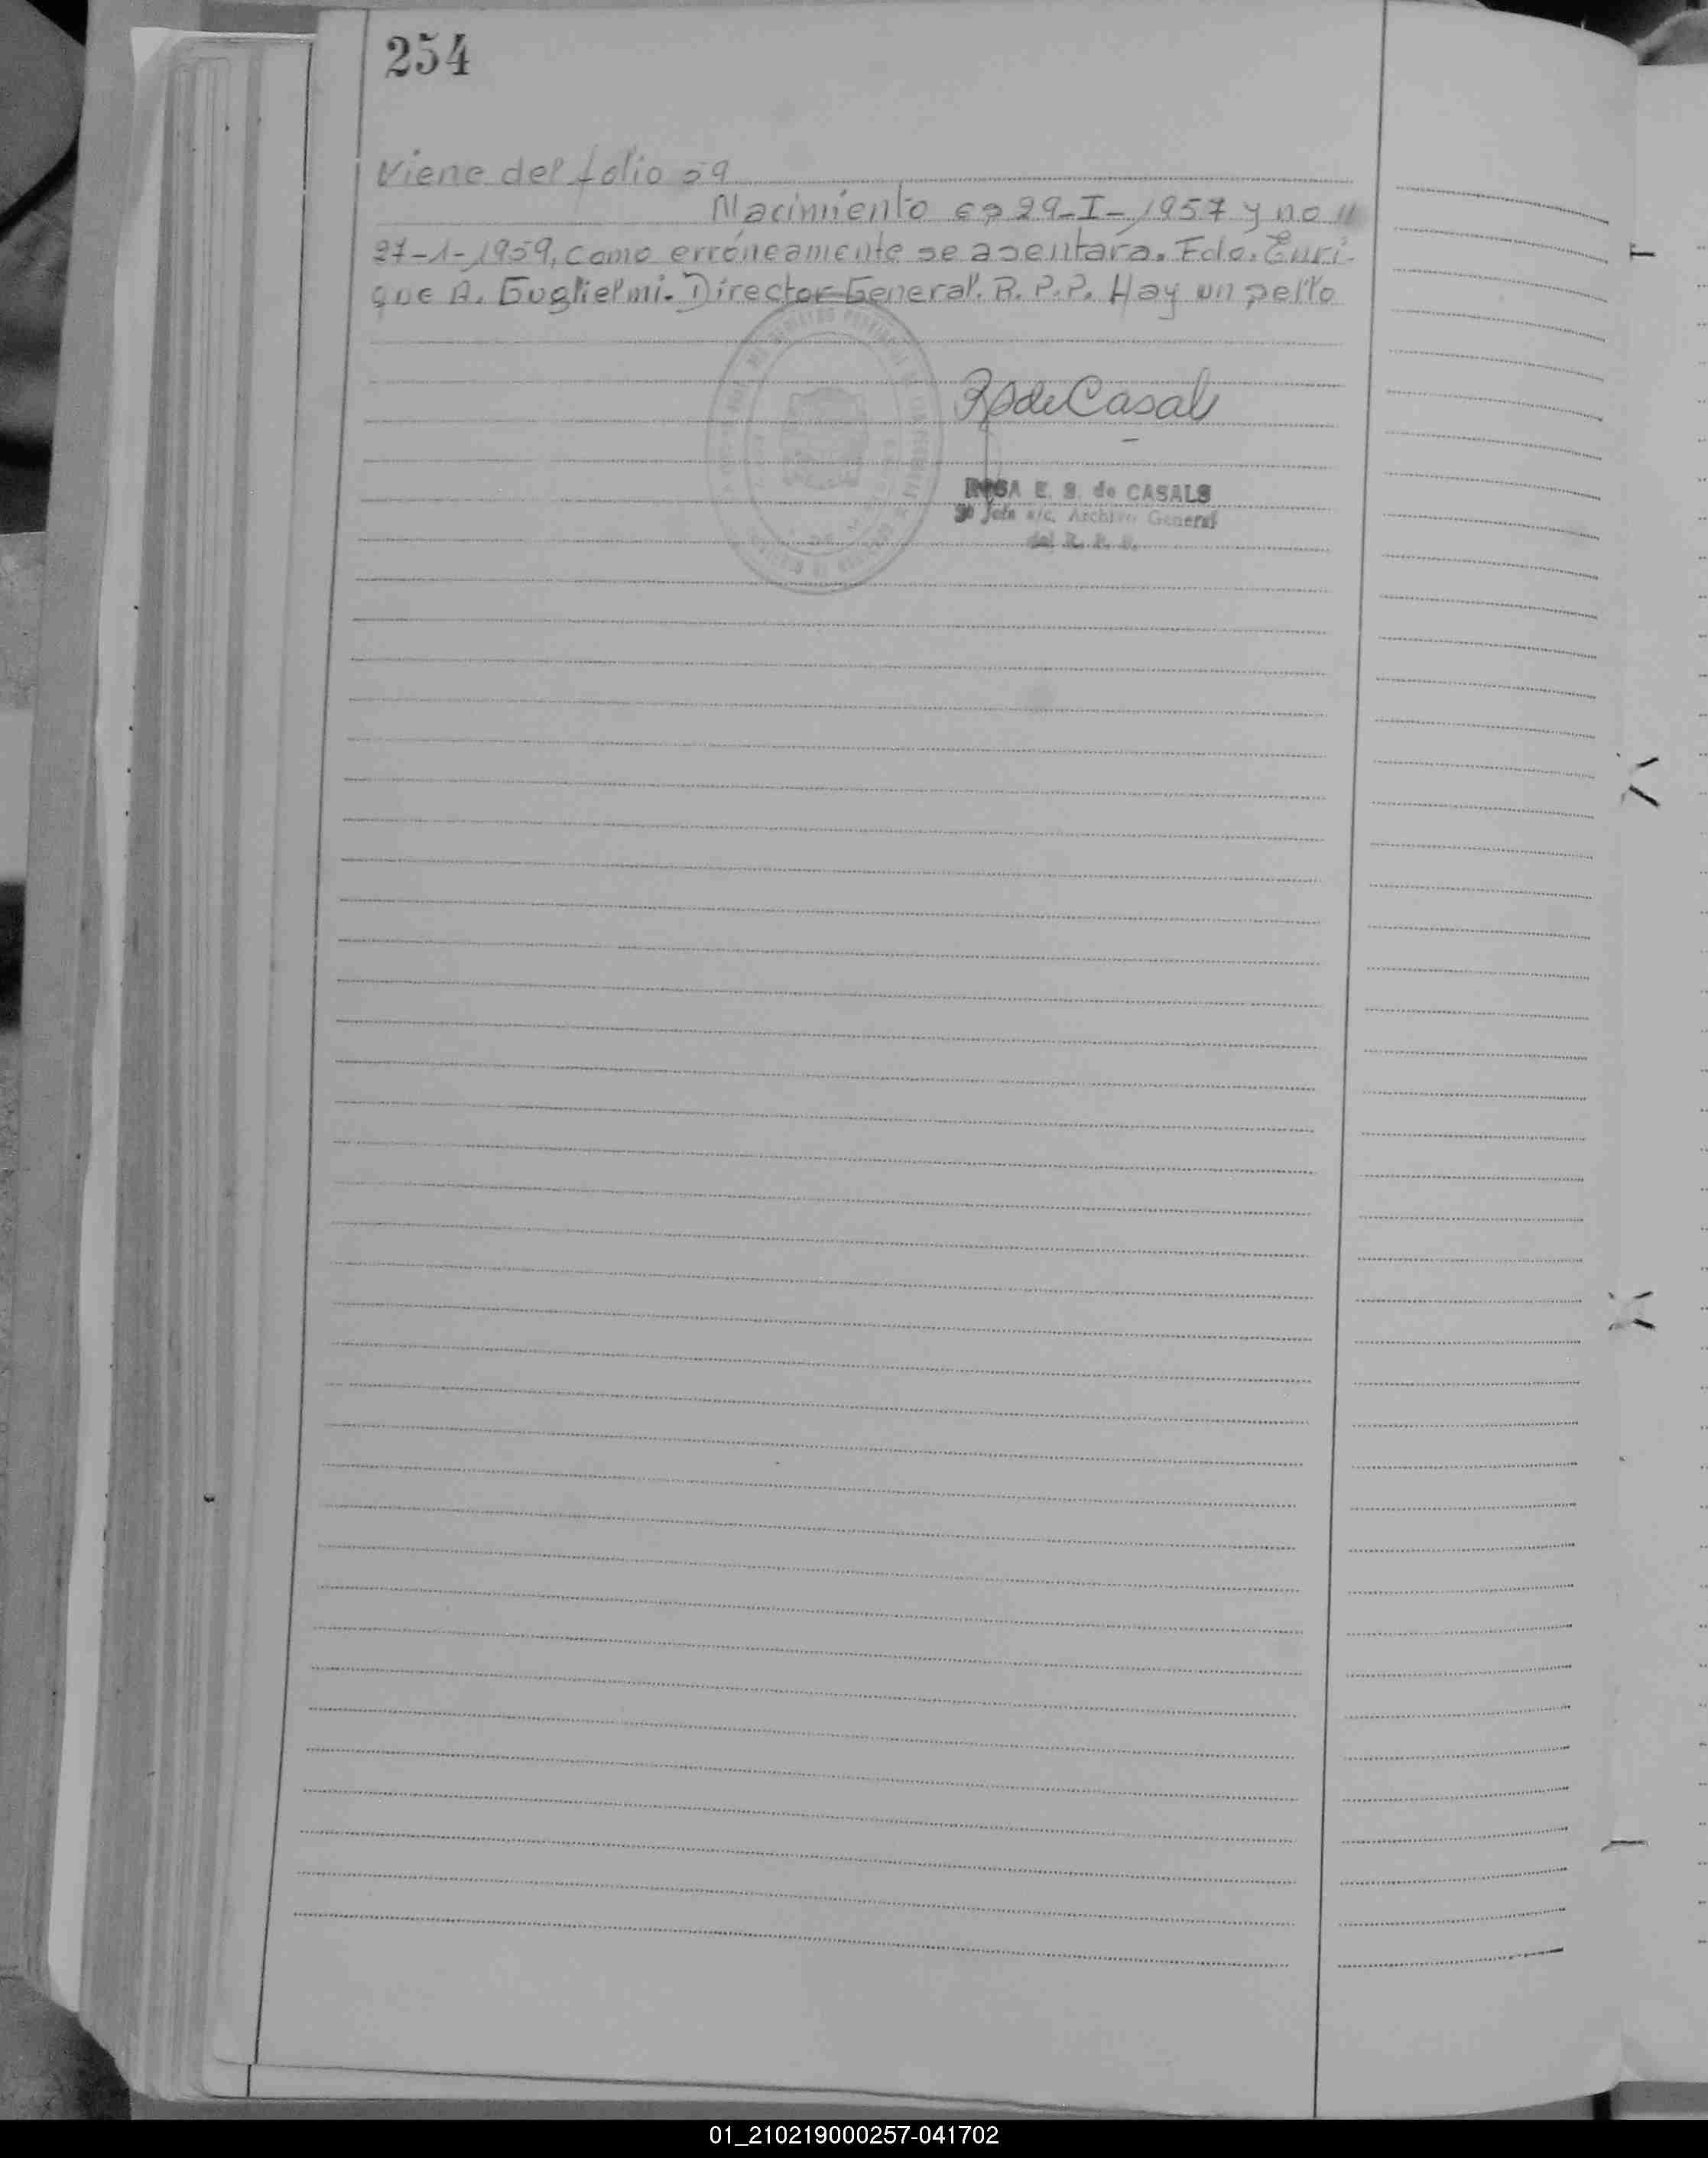 254
Viene del folio 59
Nacimiento es 29-I-1957 y no
27-1-1959, como erróneamente se asentara. Fdo. Enri-
que A. Guglielmi. Director General. R. P. P. Hay un sello
R S de Casals
ROSA E. S. de CASALS
Jefe a/c. Archivo General
del R. P. P.
01_210219000257-041702